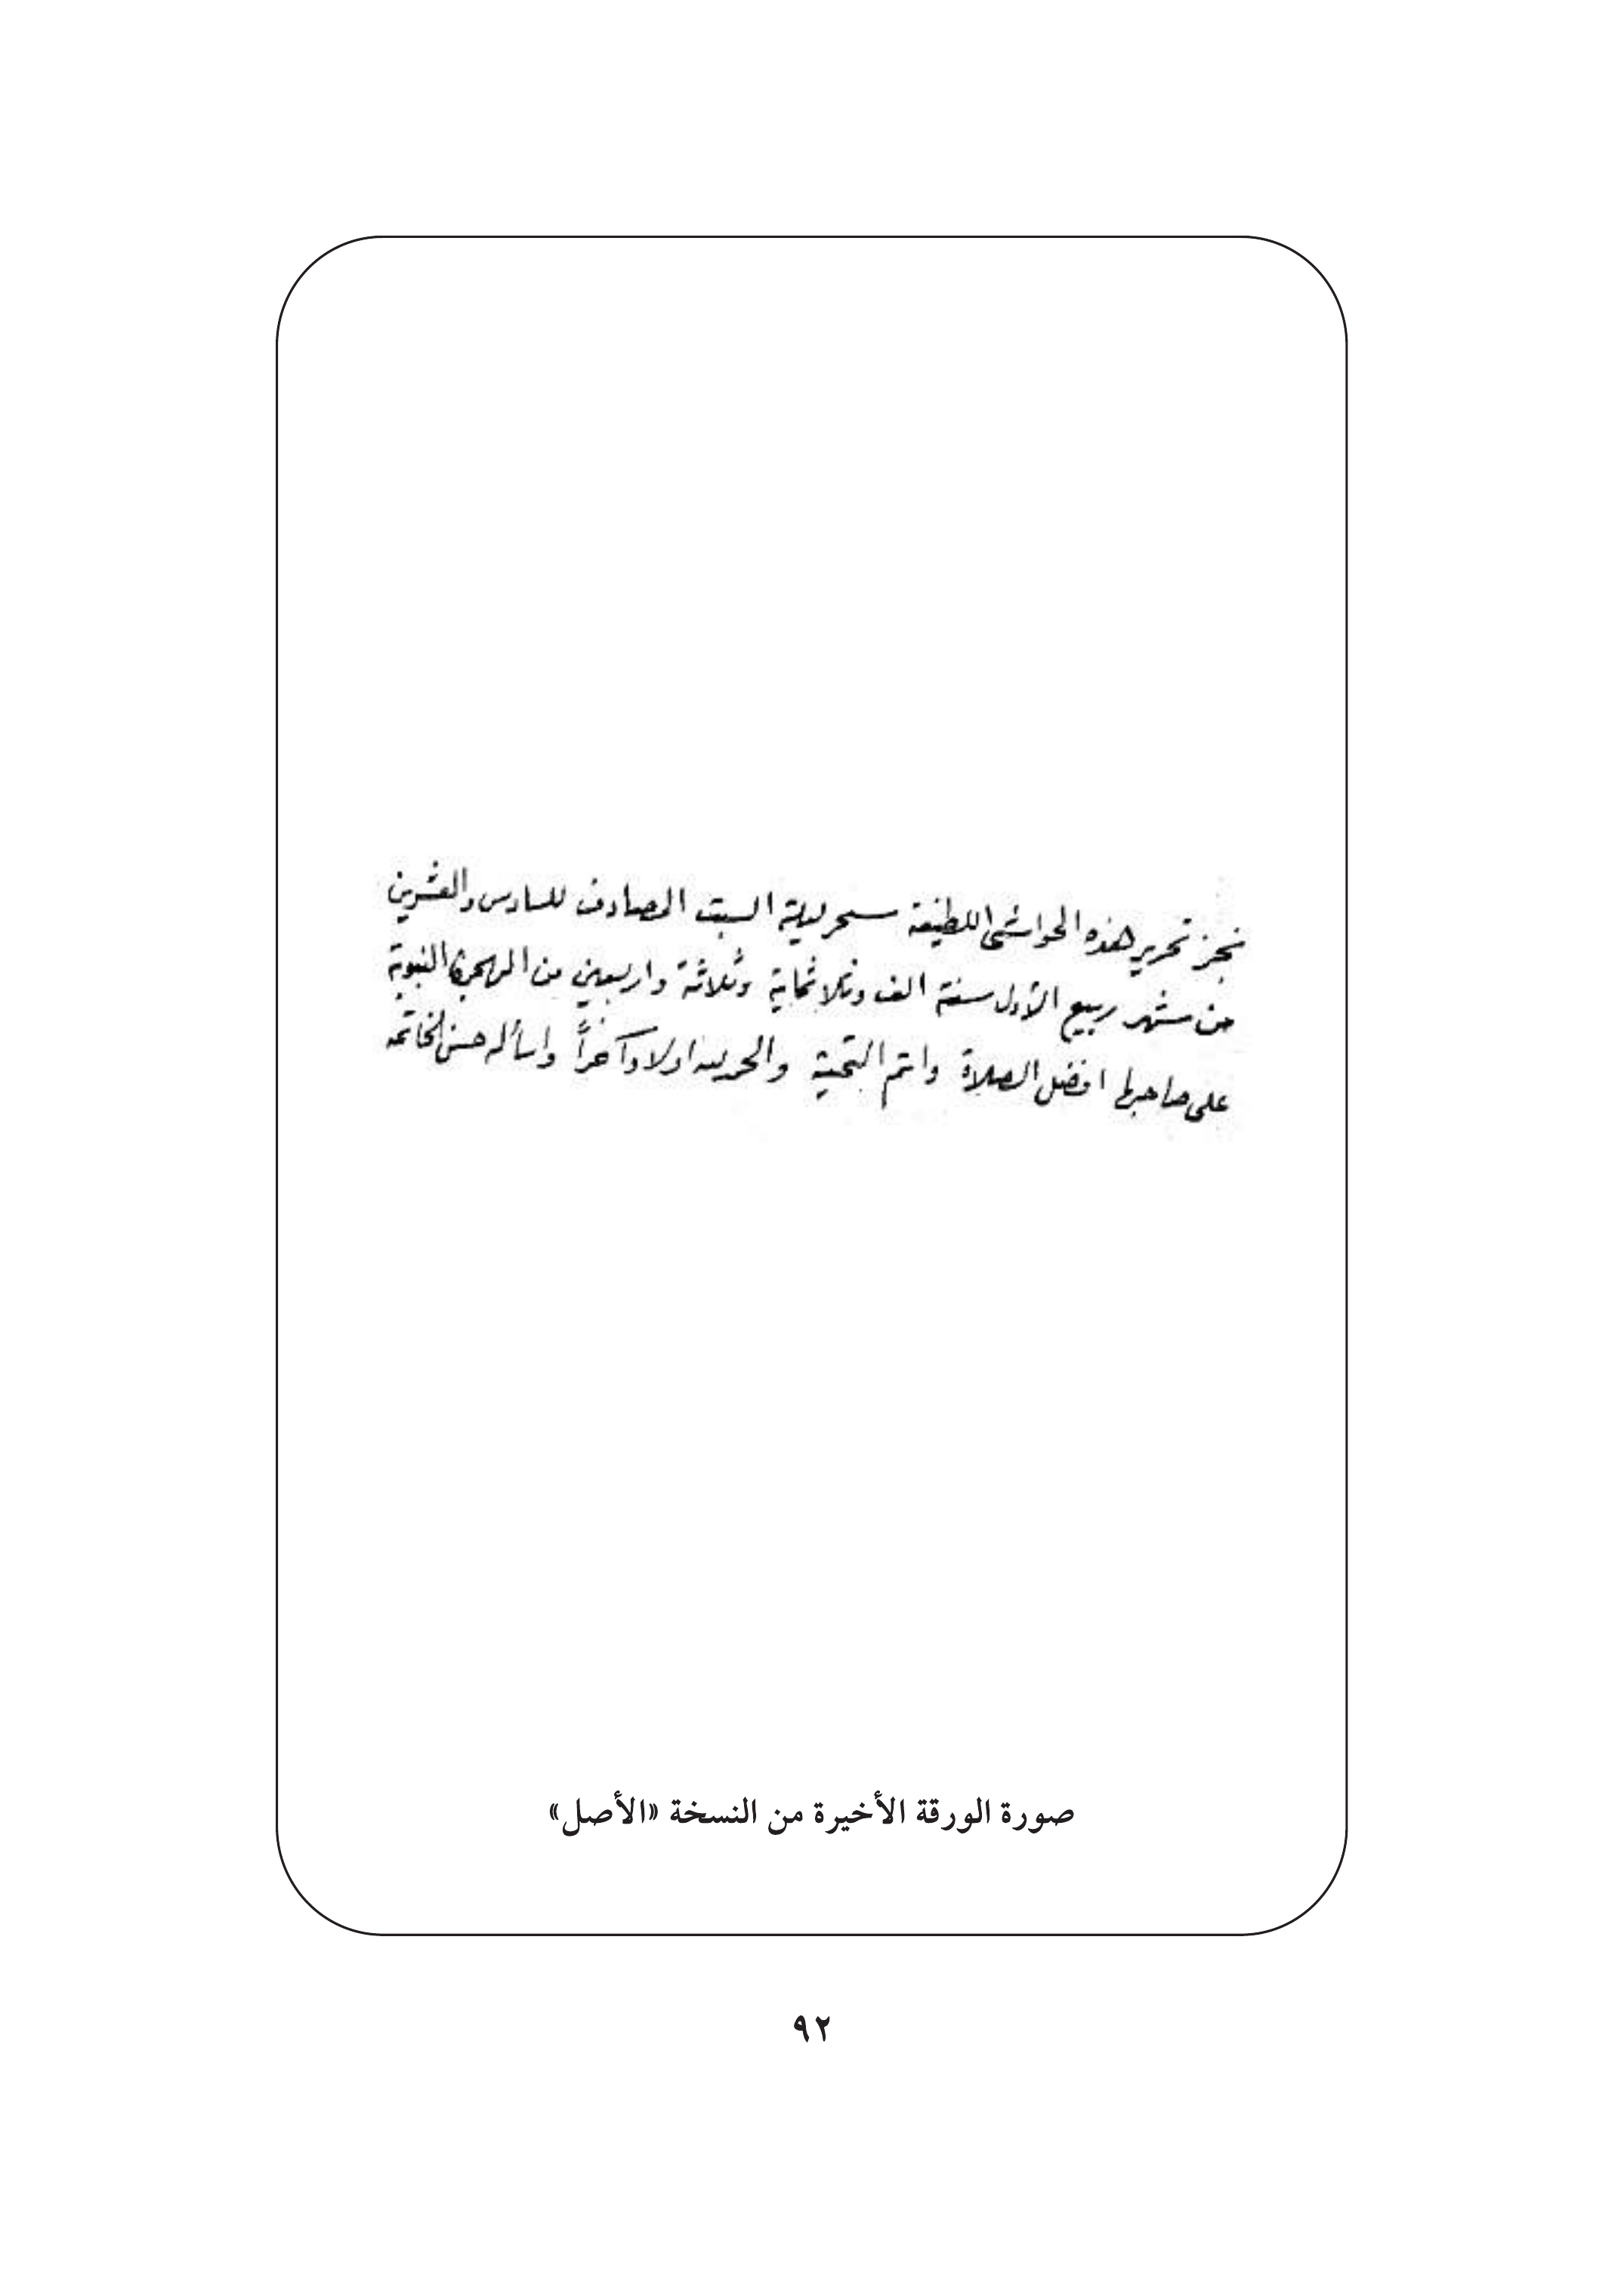 نجز تحرير هذه الحواشى اللطيفة سحر ليلة السبت المصادف للسادس والعشرين
من شهر ربيع الأول سنة الف وثلاثماية وثلاثة واربعين من الهجرة النبوية
على صاحبها افضل الصلاة واتم التحية والحمد لله اولا وآخراً واسأله حسن الخاتمه
صورة الورقة الأخيرة من النسخة «الأصل»
٩٢